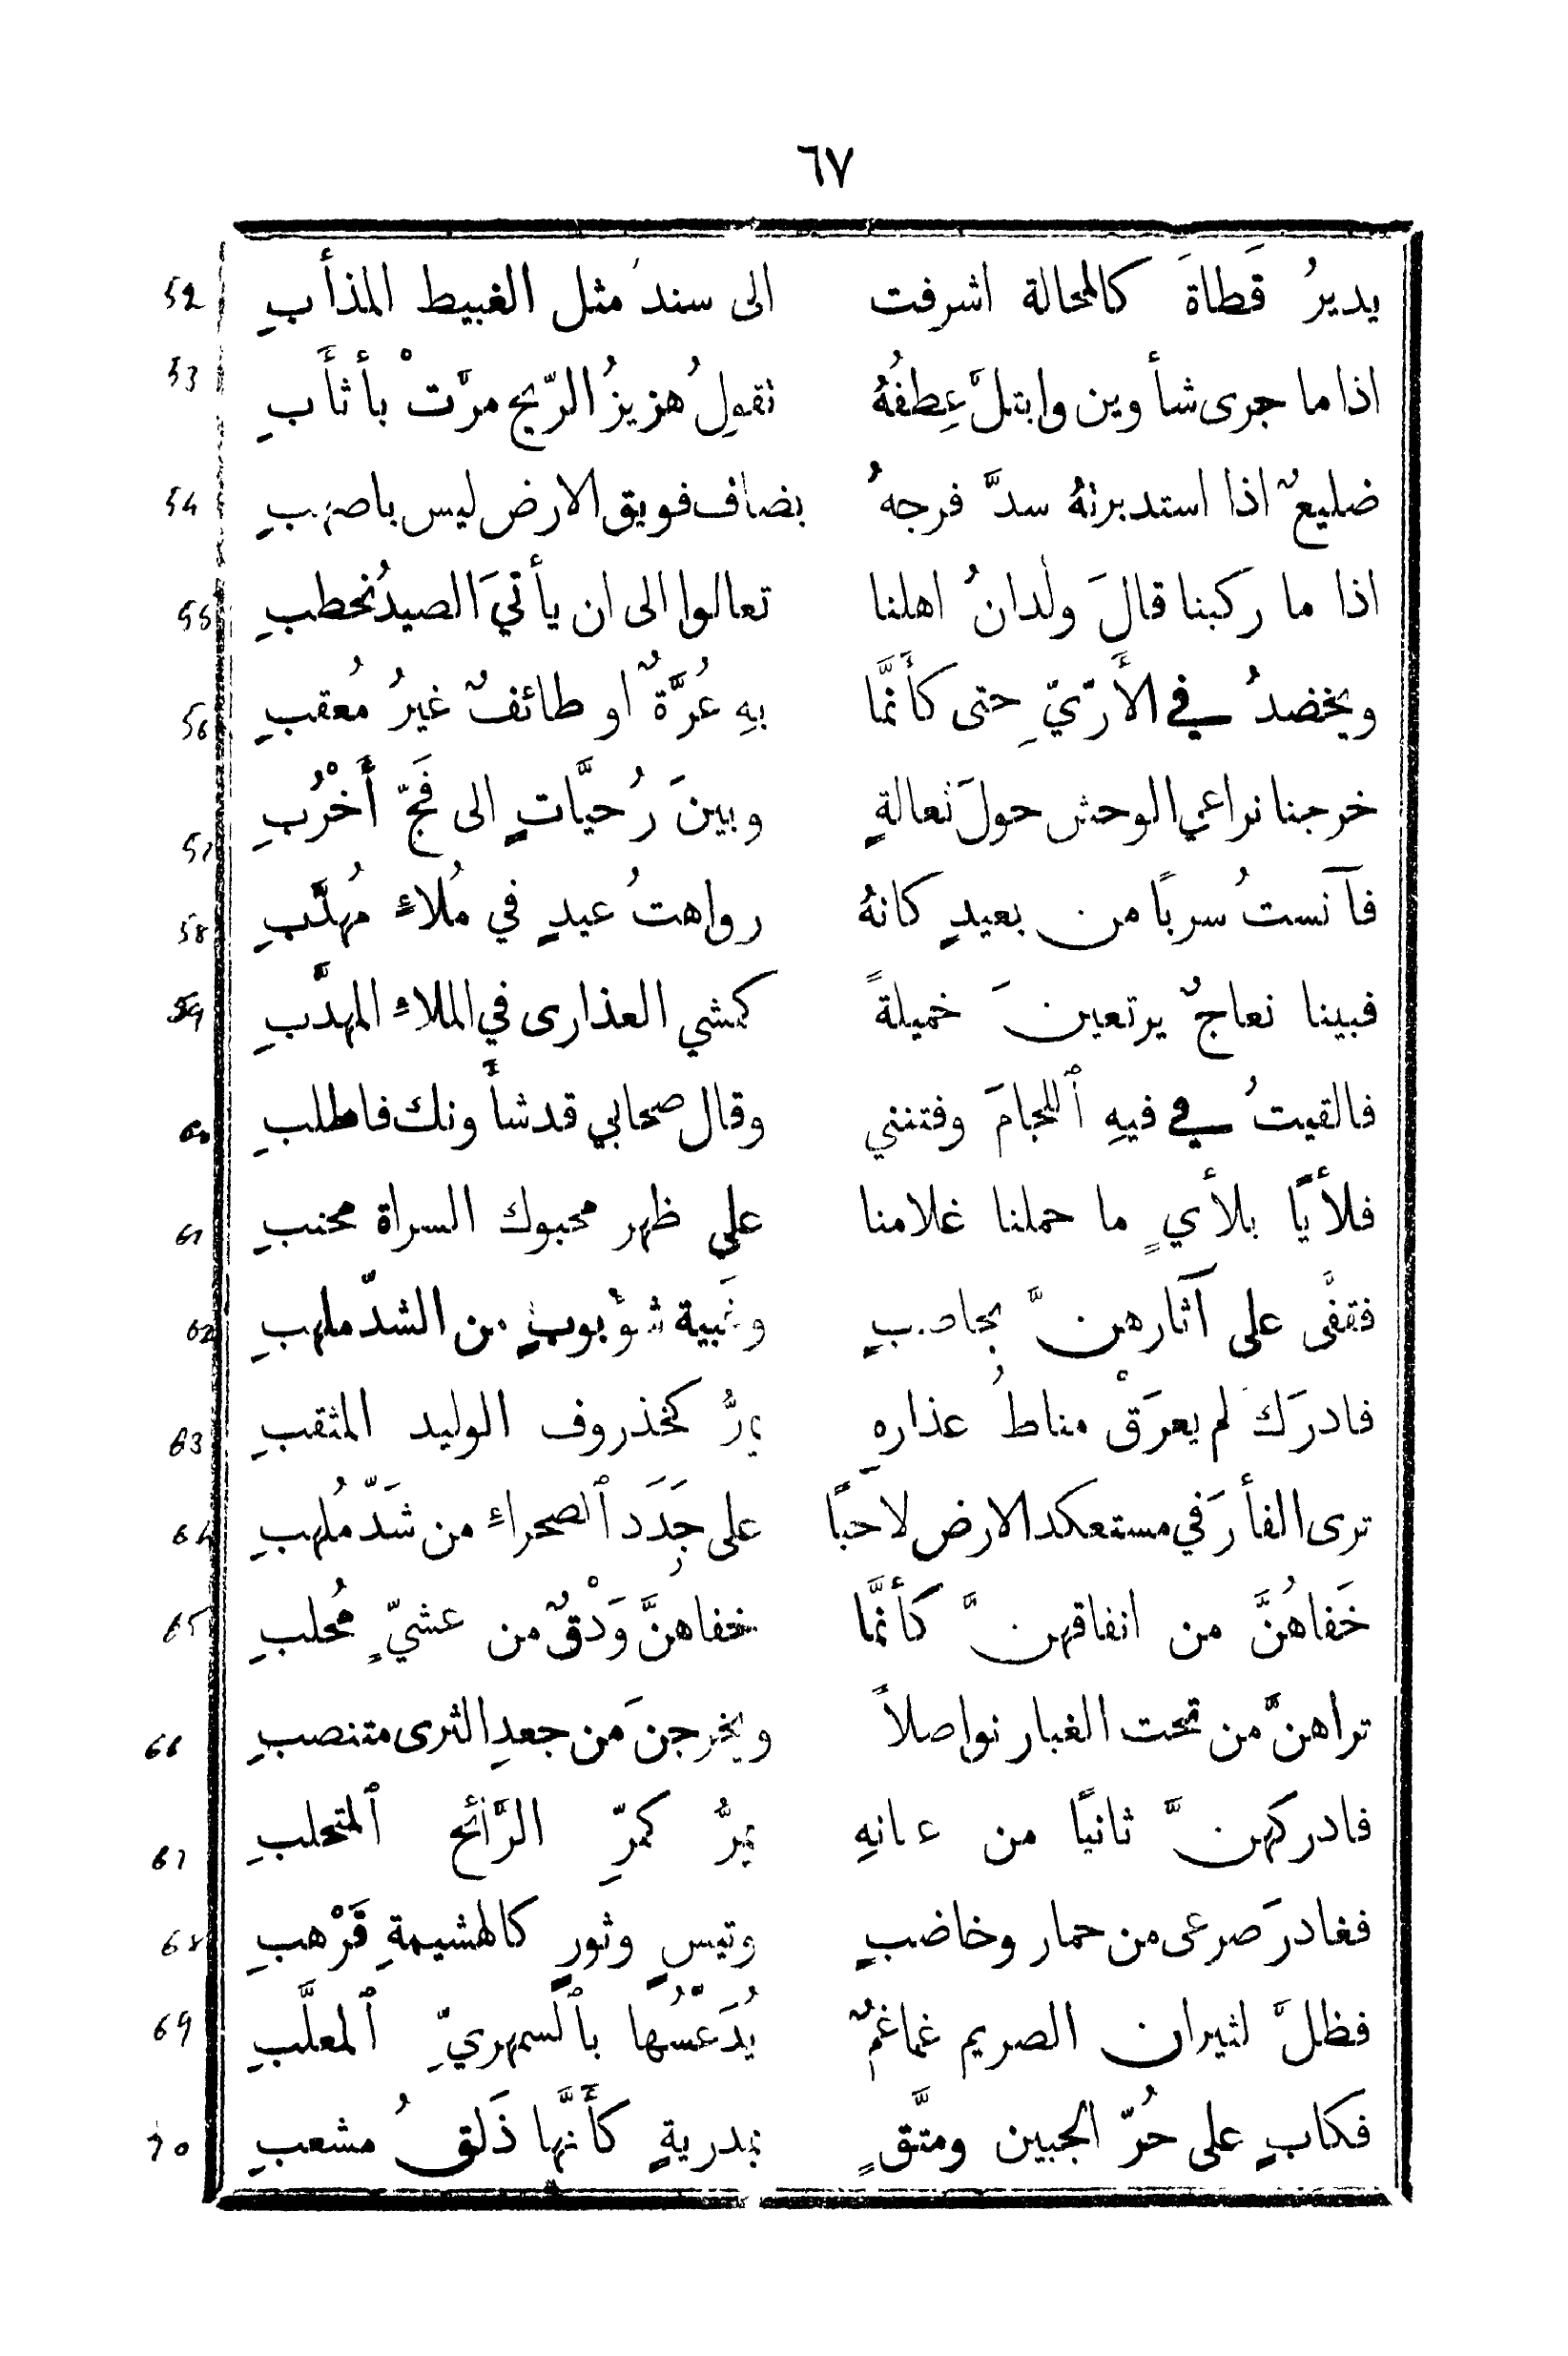 ٦٧
يديرُ قَطاةَ كالمحالة اشرفت الى سند مثل الغبيط المذأبِ 52
اذا ما جرى شأوين وابتلَّ عِطفُهُ تقولُ هزيزُ الرّيح مرَّتْ بأثأبِ 53
ضليعٌ اذا استدبرتهُ سدَّ فرجهُ بضاف فويق الارض ليس باصهبِ 54
اذا ما ركبنا قالَ ولدانُ اهلنا تعالوا الى ان يأتيَ الصيدُ نحطبِ 55
ويخضدُ في الأَريّ حتى كأَنَّما بهِ عُرَّةٌ او طائفٌ غيرُ مُعقبِ 56
خرجنا نراعي الوحش حولَ ثعالةٍ وبينَ رُحيَّاتٍ الى فَجّ أَخْرُبِ 57
فآنستُ سربًا من بعيدٍ كانهُ رواهتُ عيدٍ في مُلاءٍ مُهدَّبِ 58
فبينا نعاجٌ يرتعينَ خميلةً كمشي العذارى في الملاءِ المهدَّبِ 59
فالقيتُ في فيهِ ٱللجامَ وفتنني وقال صحابي قد شأَونك فاطلبِ 60
فلأيًا بلأيٍ ما حملنا غلامنا على ظهر محبوك السراة محنبِ 61
فقفَّى على آثارهنَّ بحاصبٍ وغَبية شؤبوبٍ من الشدّ ملهبِ 62
فادرَك لم يعرَقْ مناطُ عذارهِ يمرُّ كخذروف الوليد المثقبِ 63
ترى الفأرَ في مستعكد الارض لاحبًا على جَدَد ٱلصحراءِ من شَدّ مُلهبِ 64
خَفاهُنَّ من انفاقهنَّ كأَنَّما خفاهنَّ وَدْقٌ من عشيّ مُحلبِ 65
تراهنَّ من تحت الغبار نواصلاً ويخرجنَ من جعدِ الثرى متنصبِ 66
فادركهنَّ ثانيًا من عنانهِ يمرُّ كمرِّ الرَّائح ٱلمتحلبِ 67
فغادرَ صرعى من حمار وخاضبٍ وتيسٍ وثورٍ كالهشيمةِ قَرْهبِ 68
فظلَّ لثيران الصريم غماغمٌ يُدَعّسُها بٱلسمهريِّ ٱلمعلَّبِ 69
فكابٍ على حُرّ الجبين ومتَّقٍ بمدريةٍ كأَنَّها ذَلقُ مشعبِ 70